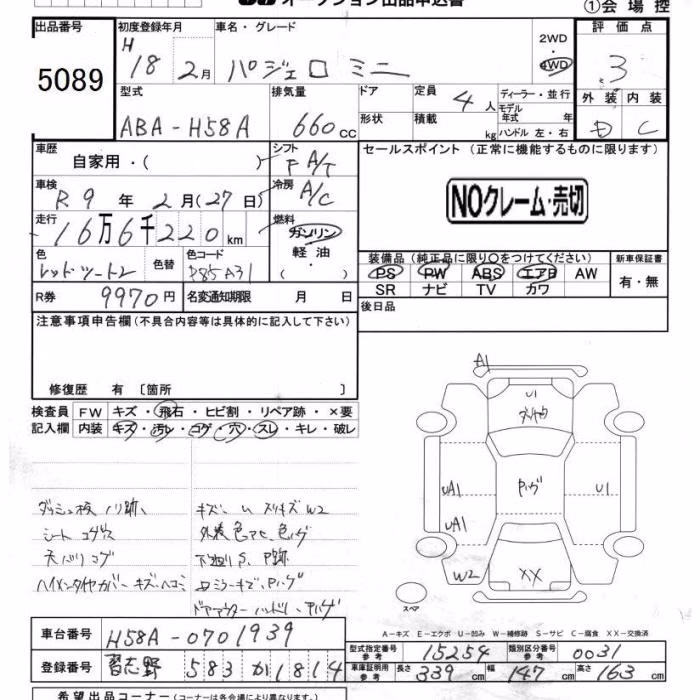 オークション出品申込書
①会場控
出品番号
5089
初度登録年月
H 18 2月
車名・グレード
パジェロ ミニ
2WD
4WD
評価点
3
外装 内装
D C
型式
ABA-H58A
排気量
660cc
ドア
形状
定員 4人
積載 kg
ディーラー・並行
モデル年式 年式
ハンドル 左・右
車歴
自家用・( )
シフト
F A/T
車検
R9年 2月(27日)
冷房
A/C
走行
16万6千220km
燃料
ガソリン
軽油
( )
色
レッドツートン
色替
色コード
P85A31
R券
9970円
名変通知期限 月 日
セールスポイント (正常に機能するものに限ります)
NOクレーム・売切
装備品 (純正品に限り○をつけてください)
PS PW ABS エアB AW
SR ナビ TV カワ
新車保証書
有・無
後日品
注意事項申告欄 (不具合内容等は具体的に記入して下さい)
修復歴 有 〔箇所 〕
検査員記入欄
FW キズ・飛石・ヒビ割・リペア跡・×要
内装 キズ・汚レ・コゲ・穴・スレ・キレ・破レ
ダッシュ板ノリ跡、
シートコゲ穴
天バリコゲ
キズ、U スリキズW2
外装色アセ、色ハゲ
下廻りS、P跡
A1
U1
UA1
UA1
Pハゲ
U1
W2
XX
スペア
A－キズ E－エクボ U－凹み W－補修跡 S－サビ C－腐食 XX－交換済
車台番号
H58A-0701939
登録番号
習志野 583 か 1814
型式指定番号 参考
15254
類別区分番号 参考
0031
車庫証明用 参考
長さ 339cm 幅 147cm 高さ 163cm
希望出品コーナー (コーナーは各会場により異なります。)